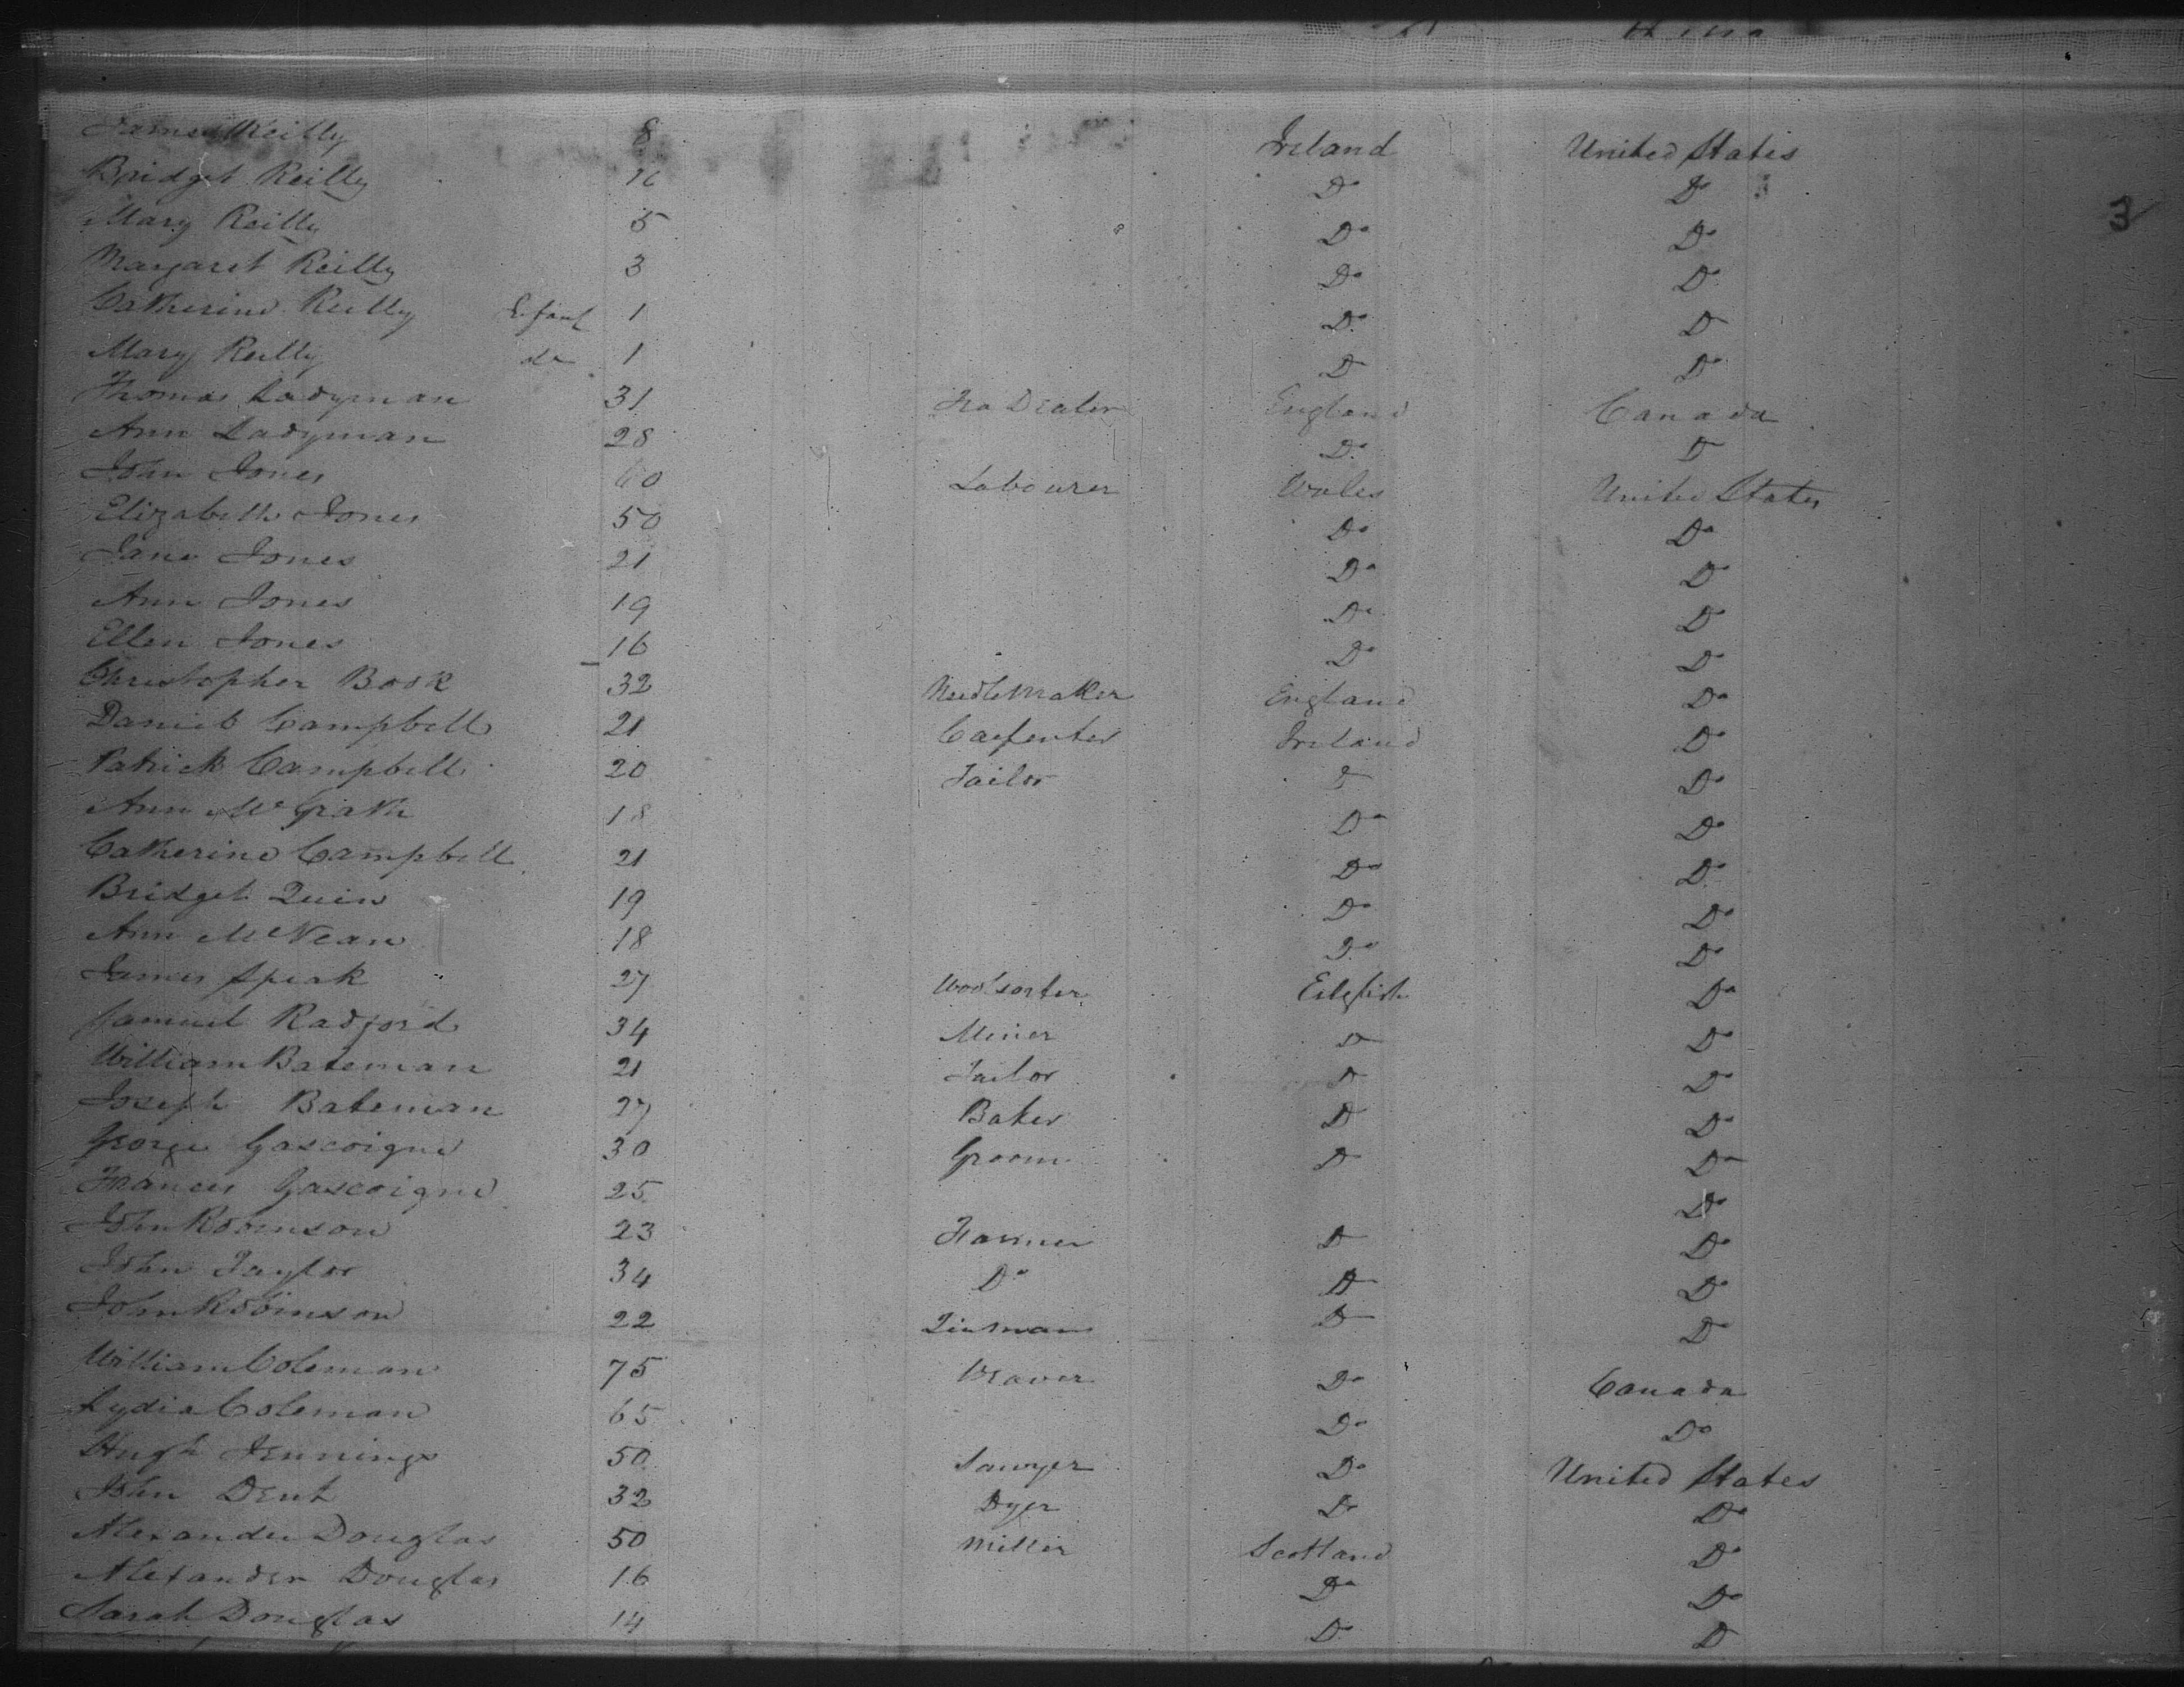 James Reilly 8 Ireland United States
Bridget Reilly Do Do
3
Mary Reilly 5 Do Do
Margaret Reilly 3 Do Do
Catherine Reilly Infant 1 Do Do
Mary Reilly do 1 Do Do
Thomas Ladyman 31 Tea Dealer England Canada
Ann Ladyman 28 Do Do
John Jones 60 Labourer Wales United States
Elizabeth Jones 50 Do Do
Jane Jones 21 Do Do
Ann Jones 19 Do Do
Ellen Jones 16 Do Do
Christopher Book 32 Needlemaker England Do
Daniel Campbell 21 Carpenter Ireland Do
Patrick Campbell 20 Tailor Do Do
Ann McGrath 18 Do Do
Catherine Campbell 21 Do Do
Bridget Quin 19 Do Do
Ann McVean 18 Do Do
James Speak 27 Woolsorter English Do
Samuel Radford 34 Miner Do Do
William Bateman 21 Tailor Do Do
Joseph Bateman 27 Baker Do Do
George Gascoigne 30 Groom Do Do
Frances Gascoigne 25 Do
John Robinson 23 Farmer Do Do
John Taylor 34 Do Do Do
John Robinson 22 Do Do
William Coleman 75 Weaver Do Canada
Lydia Coleman 65 Do Do
Hugh Jennings 50 Sawyer Do United States
John Dent 32 Dyer Do Do
Alexander Douglas 50 Miller Scotland Do
Alexander Douglas 16 Do Do
Sarah Douglas 14 Do Do